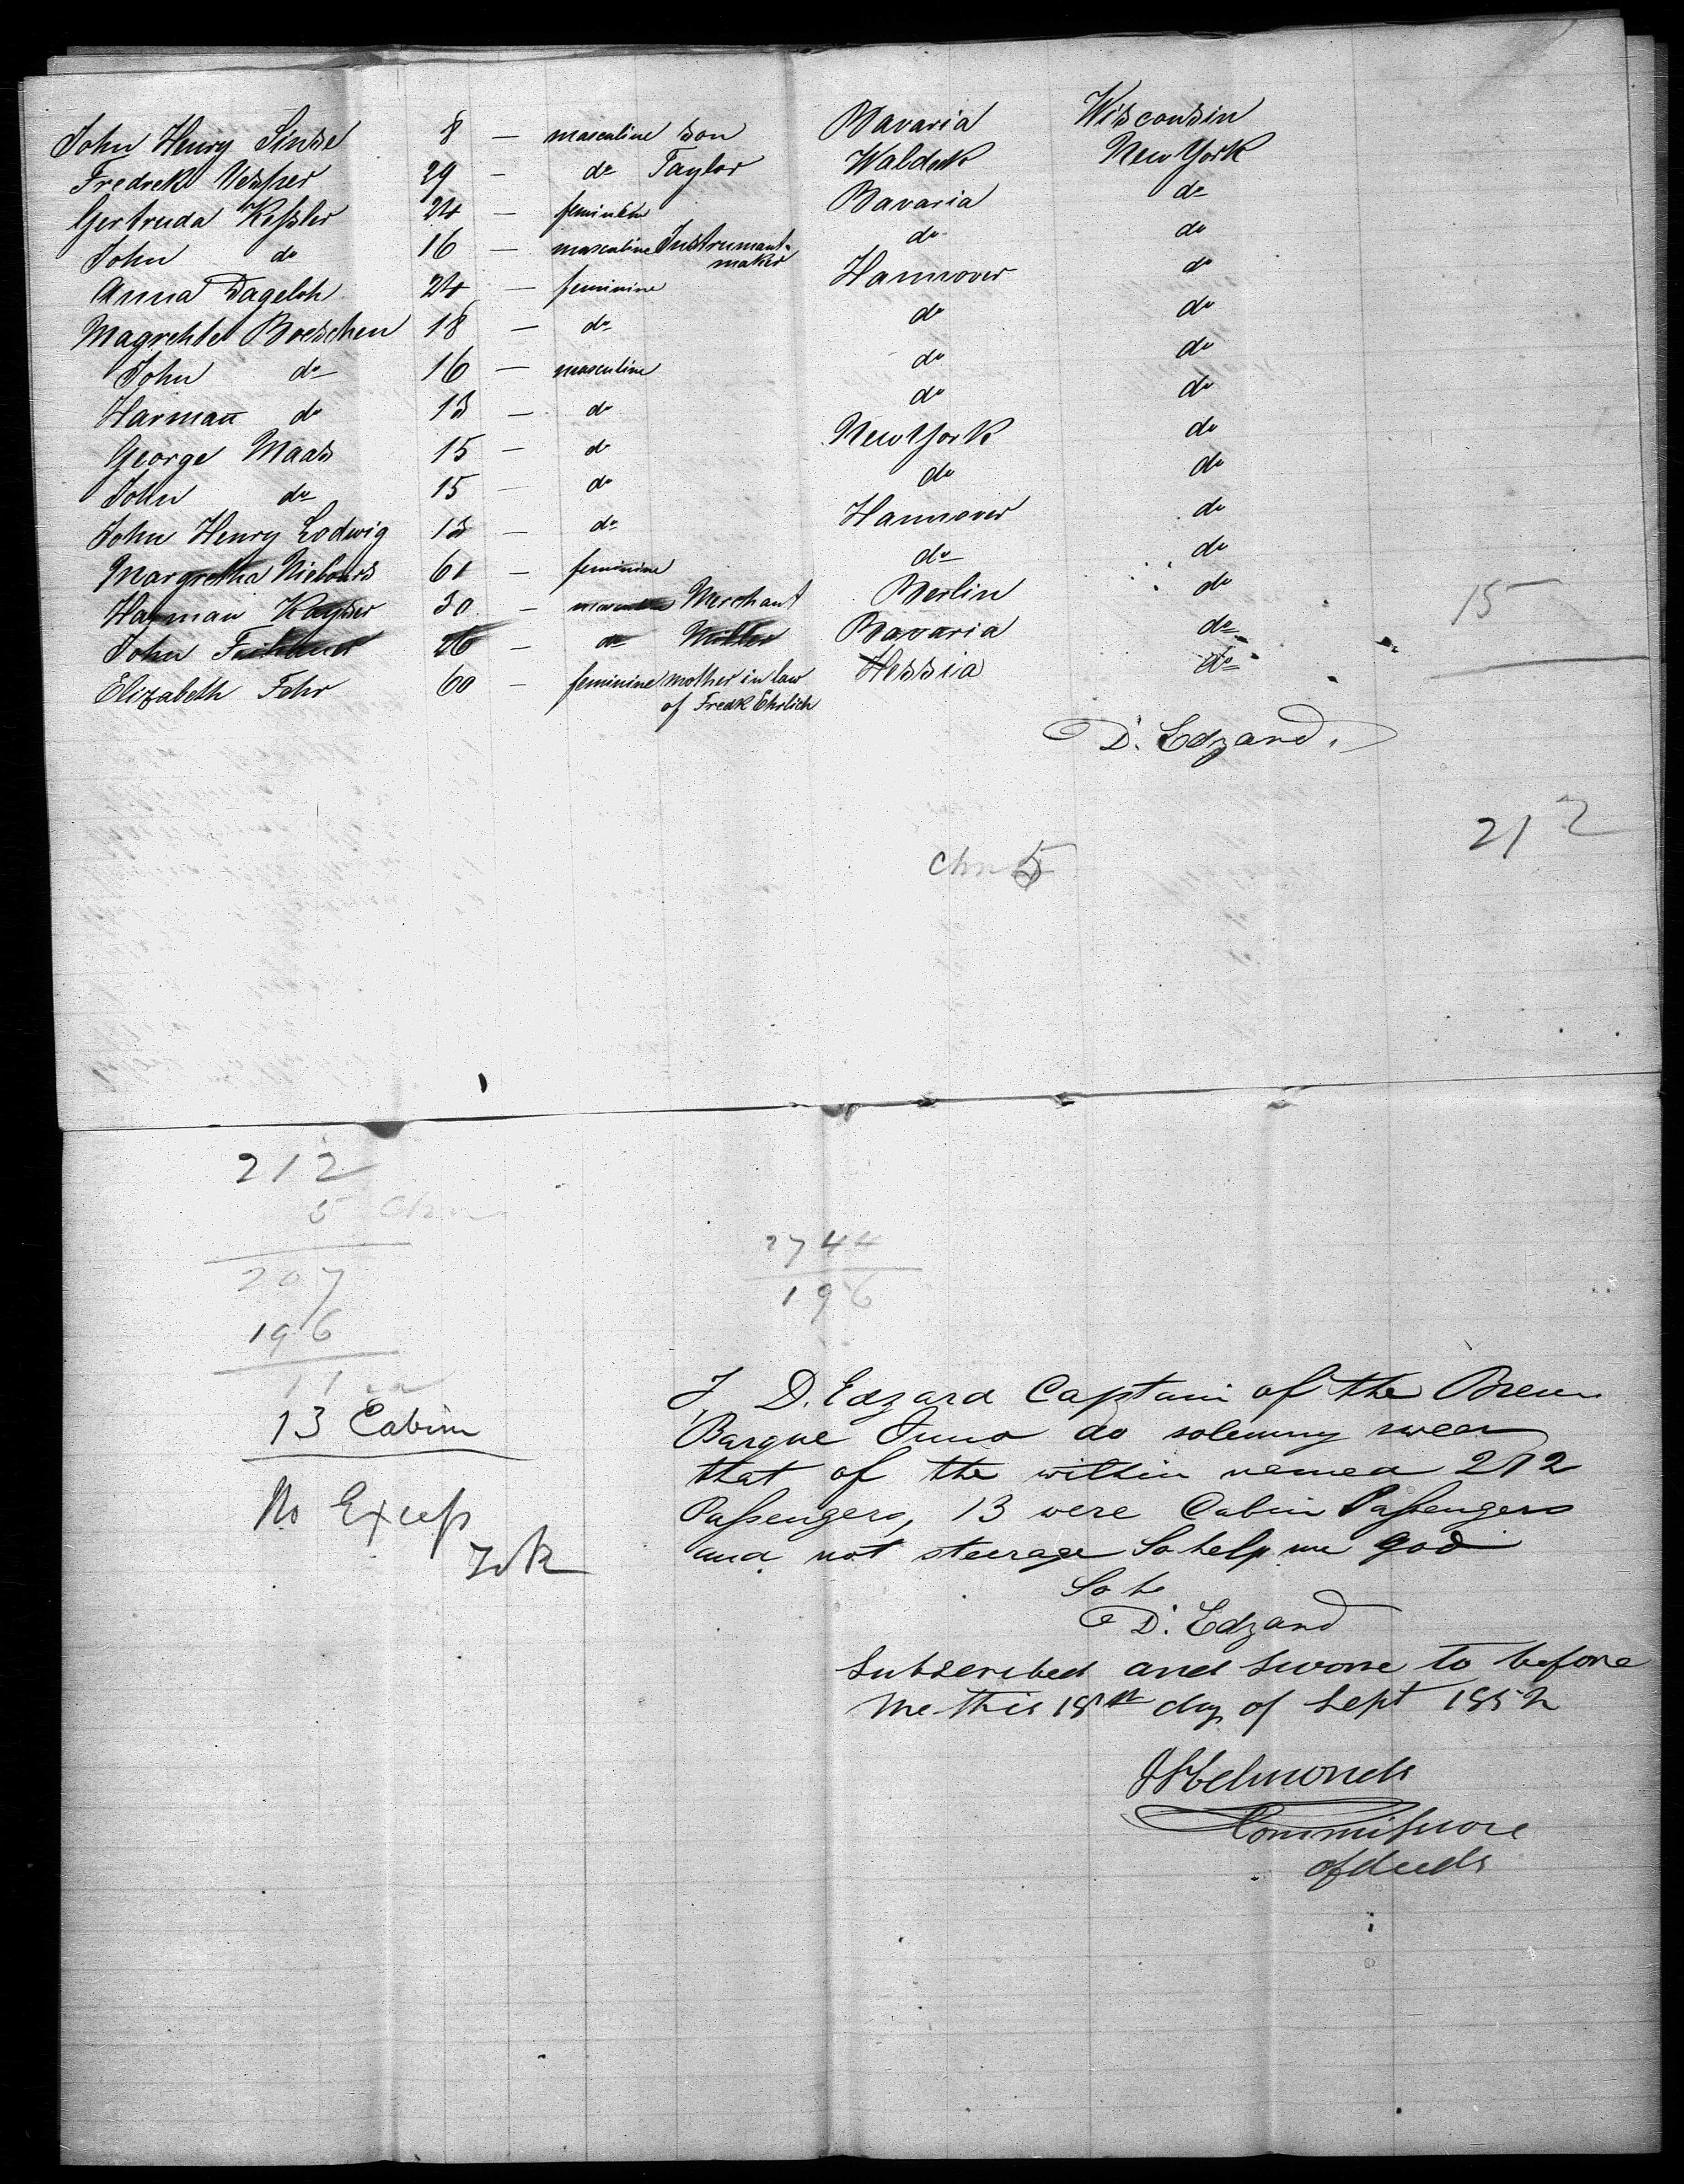 John Henry Sinse 8 — masculine son Bavaria Wisconsin
Fredrek Vesper 29 — do Taylor Waldek New York
Gertruda Keßler 24 — feminine Bavaria do
John do 16 — masculine Instrumant-maker do do
Anna Dageloh 24 — feminine Hannover do
Magrehte Boeschen 18 — do do do
John do 16 — masculine do do
Harman do 13 — do do do
George Maas 15 — do New York do
John do 15 — do do do
John Henry Lodwig 13 — do Hannover do
Margretha Niebours 61 — feminine do do
Harman Kayser 30 — masculine Merchant Berlin do
John 26 — do Miller Bavaria do
Elizabeth Fehr 60 — feminine mother in law of Fredk Ehrlich Hessia do
15
D. Edzard.
212
chn 5
212
5 Chn
207
196
11
13 Cabin
No Excess
2744
196
I, D. Edzard Captain of the Brem
Barque Juno do solemny swear
that of the within named 212
Passengers, 13 were Cabin Passengers
and not steerage So help me God
So he
D. Edzard
Subscribed and sworne to before
me this 18th day of Sept 1852
Commissione
of deeds